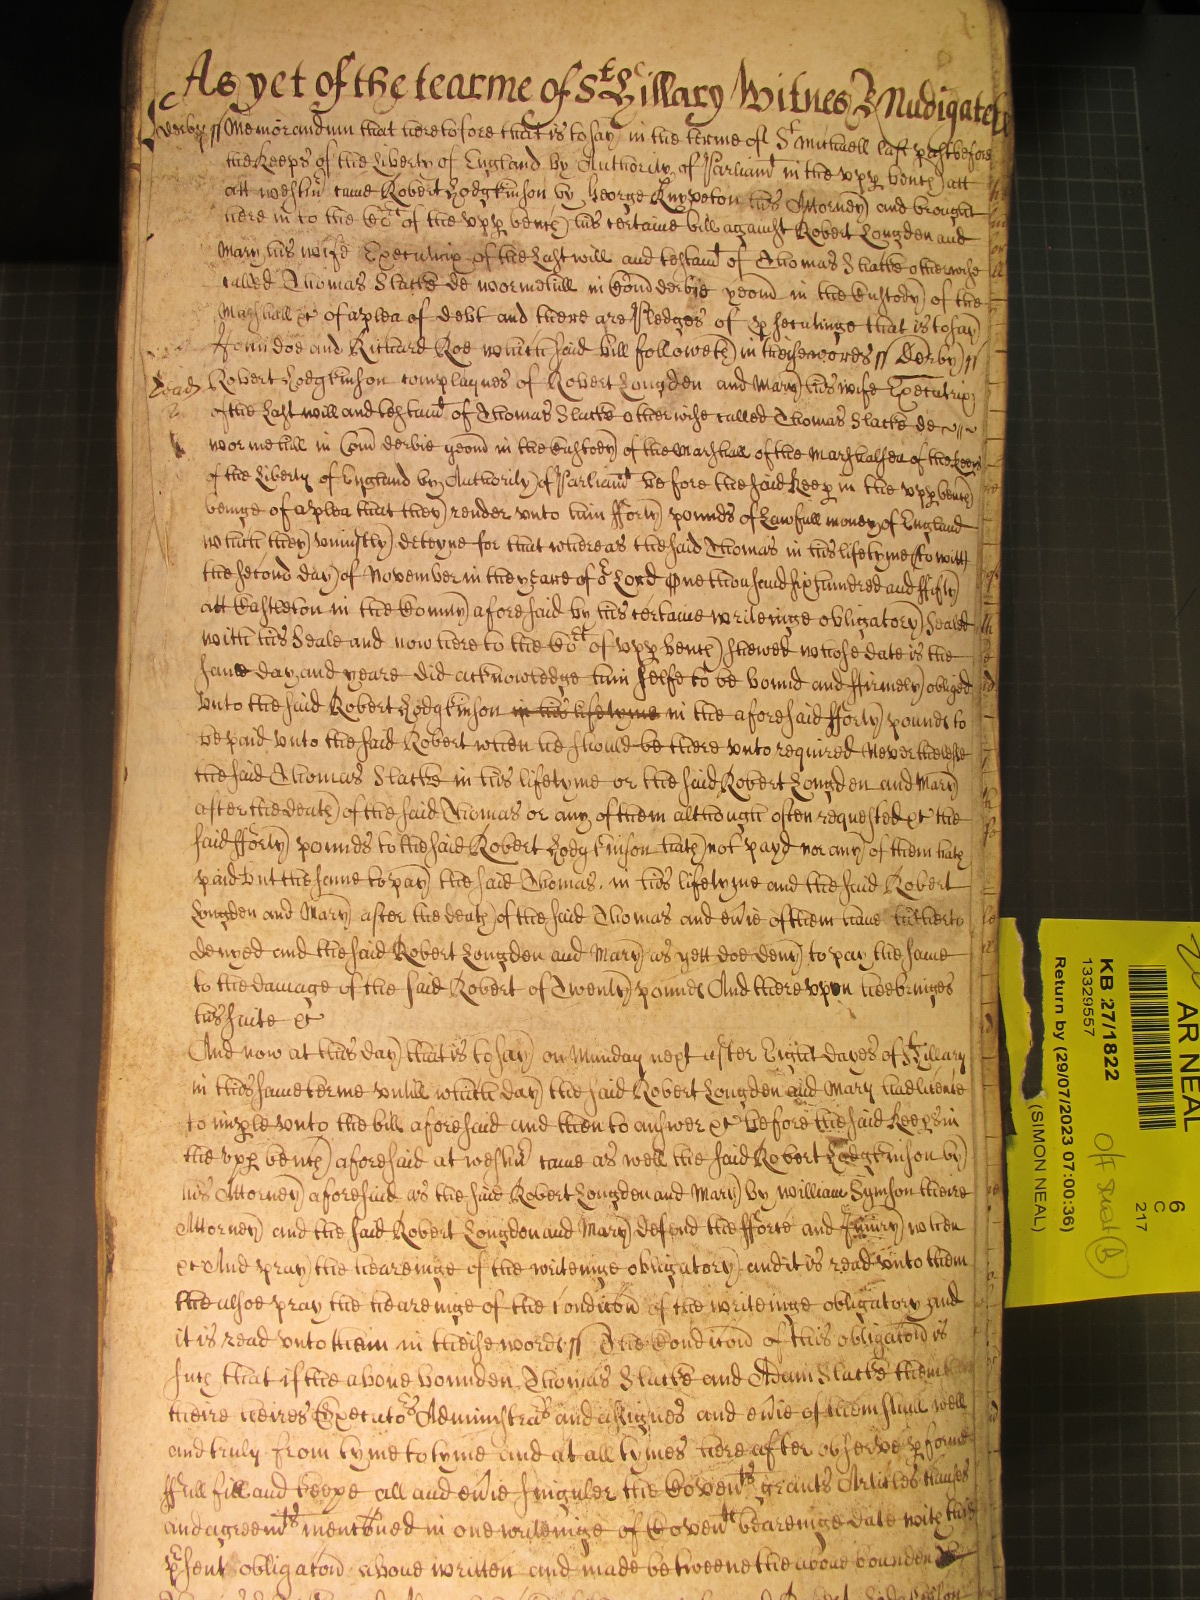 As yet of the tearme of St Hillary Witnes R Nudigate
Derby // Memorandum that heretofore that is to say in the terme of St Michaell last past before
the Keeps of the Liberty of England by Authority of Parliamt in the upp bench att
att Westmr came Robert Hodgkinson by George Knyveton his Attorney and brought
here in to the Cort of the upp bench his certaine bill against Robert Longden and
Mary his wife Executrix of the Last will and testamt of Thomas Slacke otherwise
called Thomas Slacke de Wormehill in Com derbie yeom in the Custody of the
Marshall &c of a plea of debt and there are Pledges of psecutinge that is to say
John doe and Richard Roe which said bill followeth in theise words // Derby //
Robert Hodgkinson complaynes of Robert Longden and Mary his wife Executrix
of the Last will and testamt of Thomas Slacke otherwise called Thomas Slacke de
wormehill in Com derbie yeom in the Custody of the Marshall of the Marshalsea of the Keeps
of the Liberty of England by Authority of Parliamt before the said Keeps in the upp bench
beinge of a plea that they render unto him fforty pounds of Lawfull money of England
which they uniustly deteyne for that whereas the said Thomas in his lifetyme (to witt)
the second day of November in the yeare of or Lord One thousand six hundred and ffifty
att Castleton in the County aforesaid by his certaine writeinge obligatory Sealed
with his Seale and now here to the Cort of upp bench shewed whose date is the
same day and yeare did acknowledge him selfe to be bound and ffirmely obliged
unto the said Robert Hodgkinson in his lifetyme in the aforesaid fforty pounds to
be paid unto the said Robert when he should be there unto required Neverthelesse
the said Thomas Slacke in his lifetyme or the said Robert Longden and Mary
after the death of the said Thomas or any of them although often requested &c the
said fforty pounds to the said Robert Hodgkinson hath not payd nor any of them hath
paid but the same to pay the said Thomas in his lifetyme and the said Robert
Longden and Mary after the death of the said Thomas and evie of them have hitherto
denyed and the said Robert Longden and Mary as yett doe deny to pay the same
to the damage of the said Robert of Twenty pounds And there upon hee bringes
his suite &c
And now at this day that is to say on Munday next after Eight dayes of St Hillary
in this same terme untill which day the said Robert Longden and Mary had licence
to imple unto the bill aforesaid and then to answer &c before the said Keeps in
the upp bench aforesaid at westmr came as well the said Robert Hodgkinson by
his Attorney aforesaid as the said Robert Longden and Mary by William Symson theire
Attorney and the said Robert Longden and Mary defend the fforce and Iniury when
&c And pray the heareinge of the writeinge obligatory and it is read unto them
the alsoe pray the heareinge of the Condicon of the writeinge obligatory and
it is read unto them in theise words // The Condicon of this obligacon is
such that if the above bounden Thomas Slacke and Adam Slacke them
theire heires Executors Administrars and assignes and evie of them shall well
and truly from tyme to tyme and at all tymes here after observe pforme
ffullfill and keepe all and evie singuler the Covents grants Articles clauses
and agreemts mentoned in one writeinge of Covents beareinge date with this
psent obligacon above written and made betweene the above bounden
AR NEAL
6
C
217
KB 27/1822
13329557
Return by (29/07/2023 07:00:36)
(SIMON NEAL)